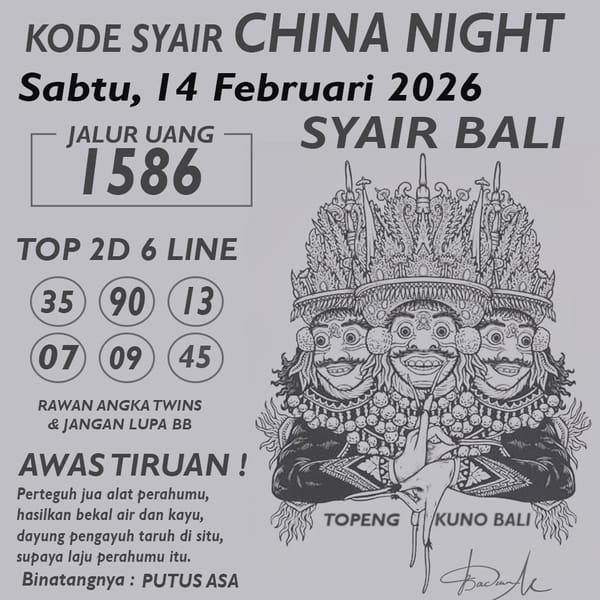 KODE SYAIR CHINA NIGHT
Sabtu, 14 Februari 2026
JALUR UANG
1586
SYAIR BALI
TOP 2D 6 LINE
35 90 13
07 09 45
RAWAN ANGKA TWINS
& JANGAN LUPA BB
AWAS TIRUAN !
Perteguh jua alat perahumu,
hasilkan bekal air dan kayu,
dayung pengayuh taruh di situ,
supaya laju perahumu itu.
Binatangnya : PUTUS ASA
TOPENG KUNO BALI